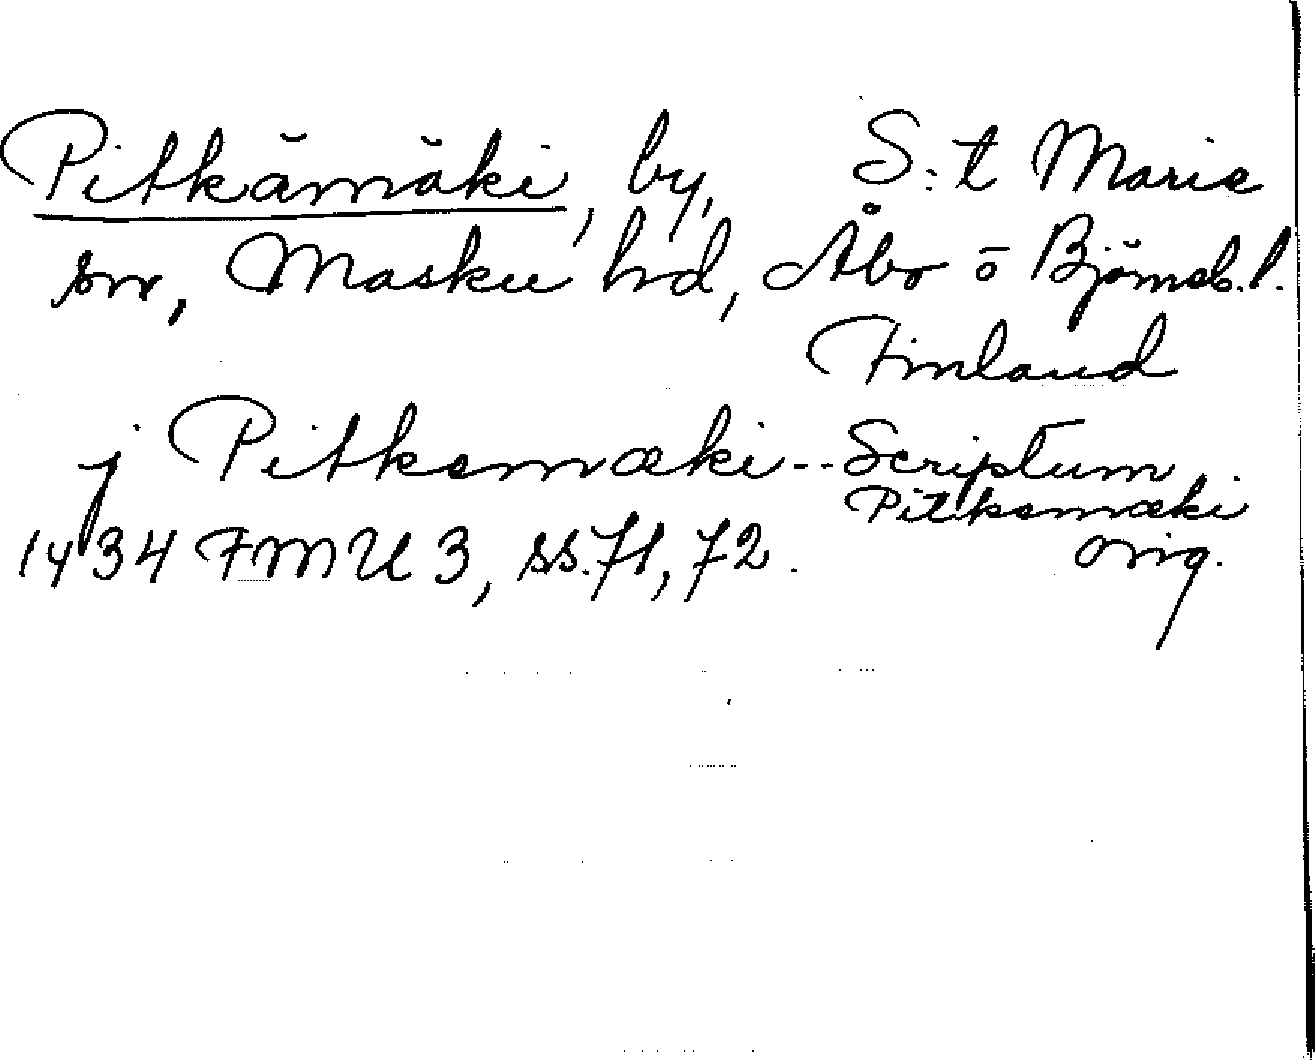 Pitkämäki, by, S:t Marie
sn, Masku hd, Åbo o Björneb.l.
Finland
j Pitkemæki -- Scriptum
Pitkemæki
1434 FMU 3, ss. 71, 72. orig.